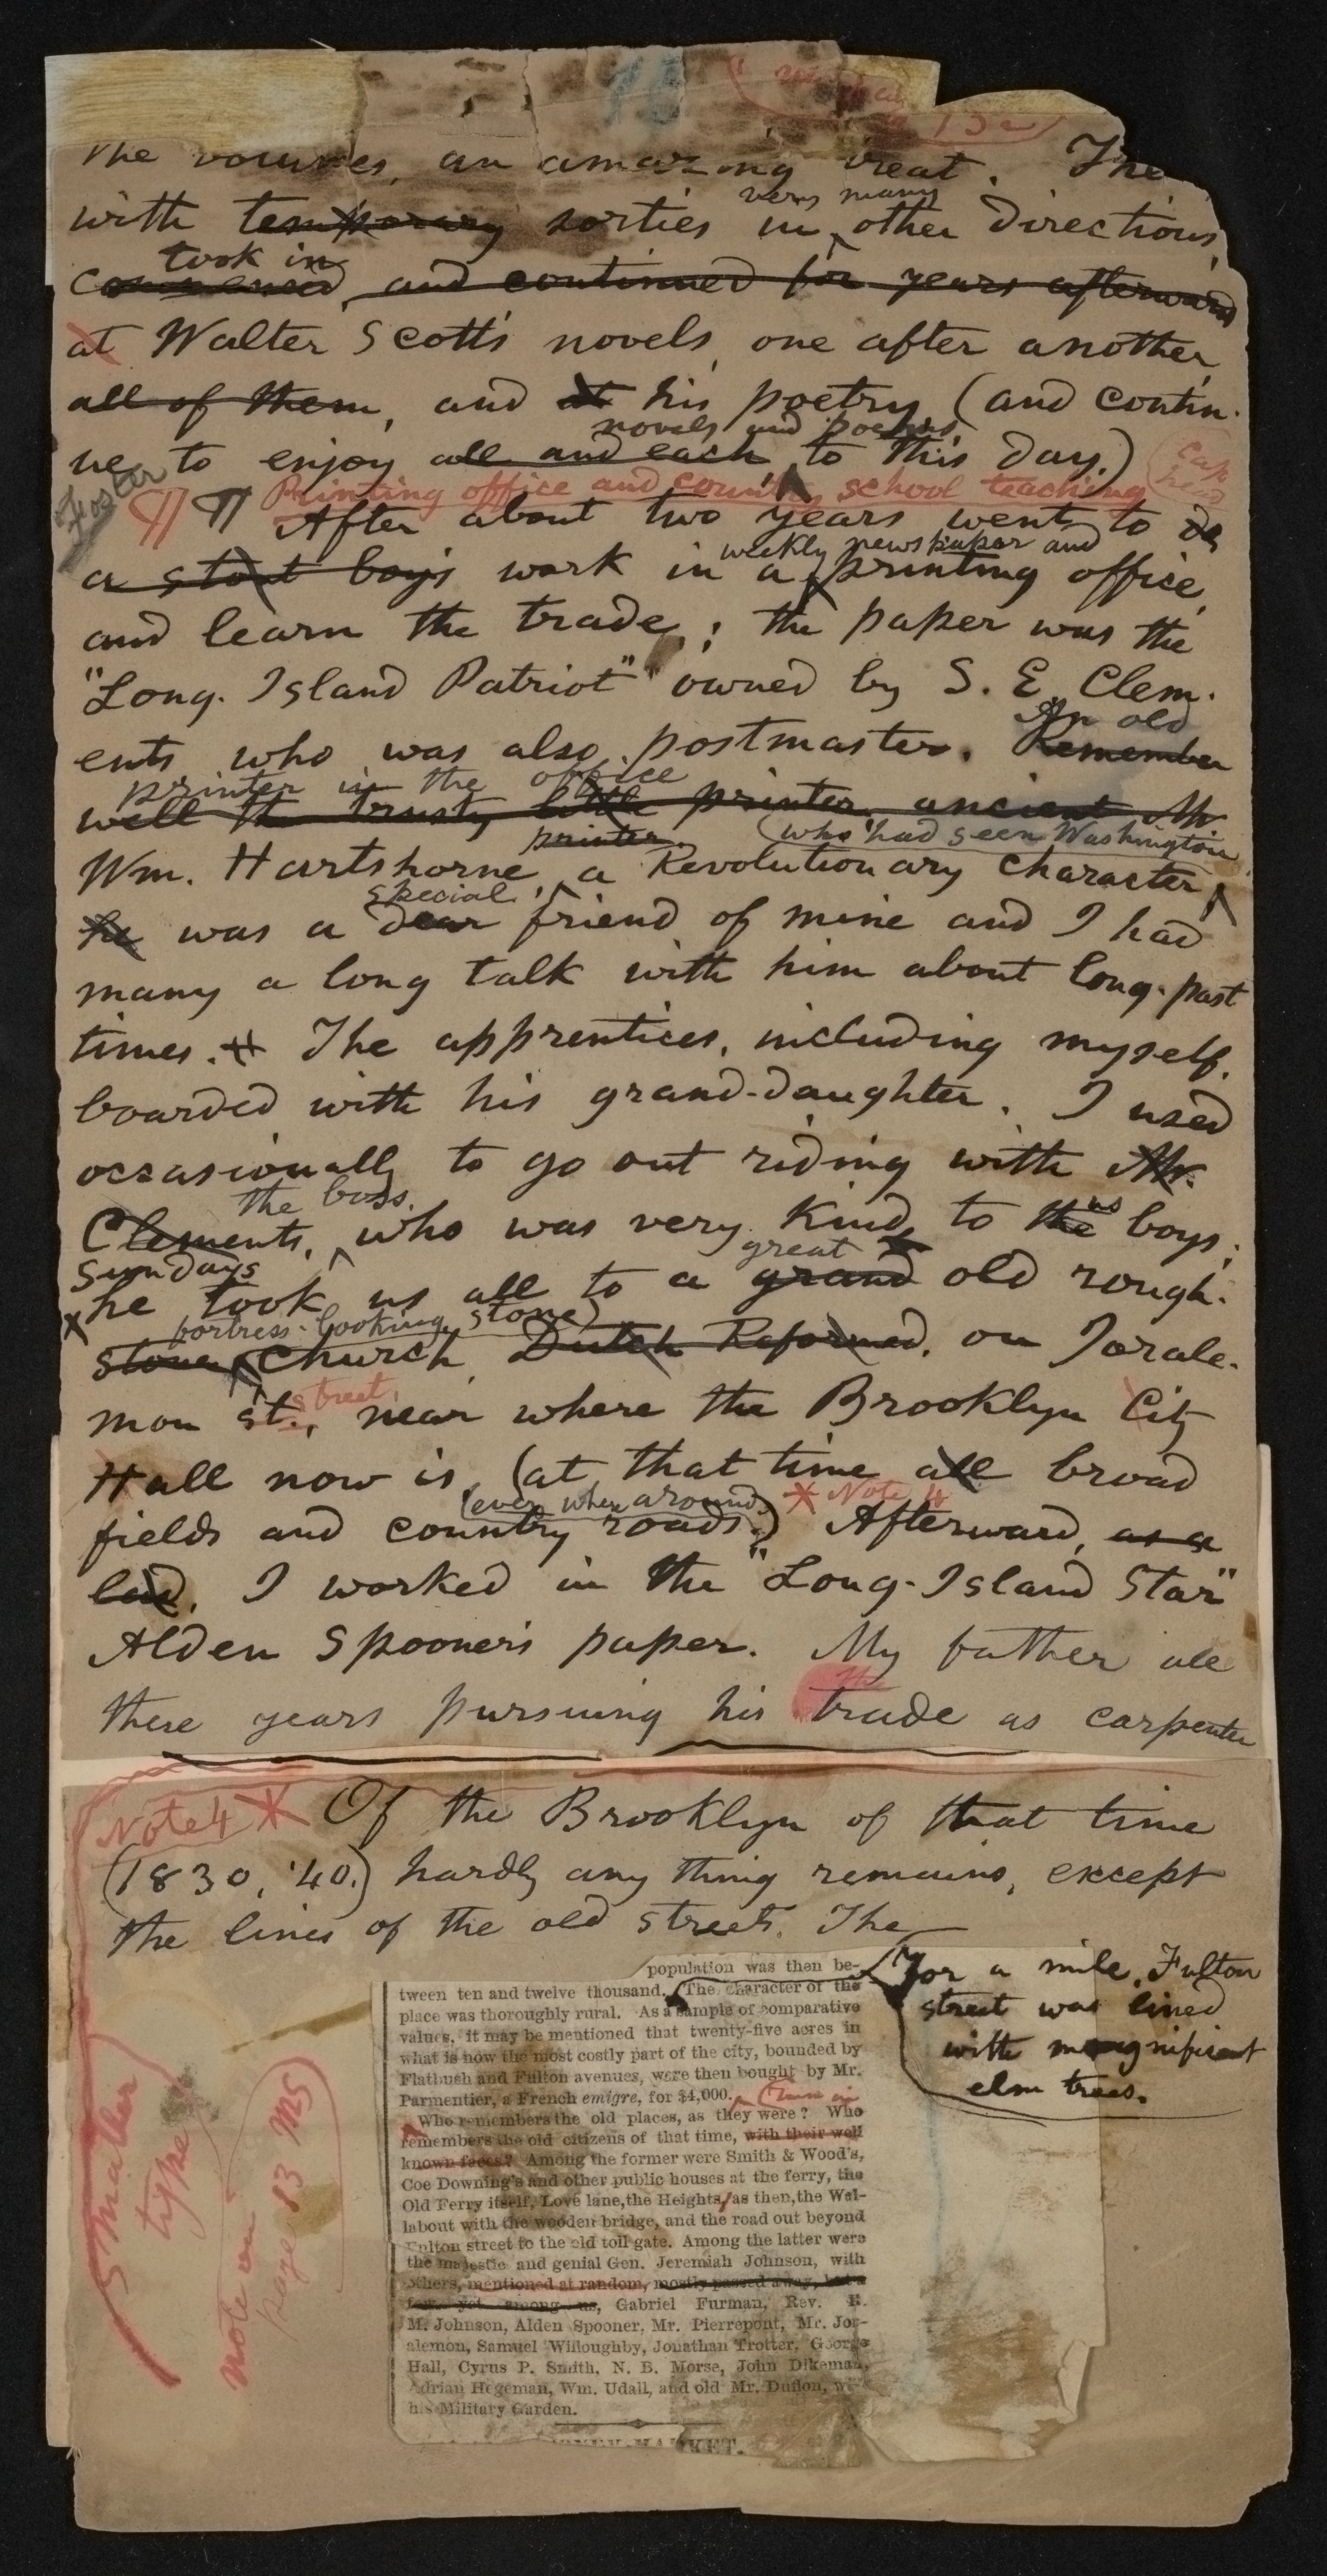 the volumes, an amazing treat. The
with temporary sorties in very many other directions,
took in
commenced, and continued for years afterward
at Walter Scott's novels, one after another,
all of them, and at his poetry, (and contin-
ue to enjoy all and each novels and poems to this day.)
Foster
¶ ¶ Printing office and country school teaching
Cap head
After about two years went to do
a stout boy's work in a weekly newspaper and printing office,
and learn the trade; the paper was the
"Long-Island Patriot" owned by S. E. Clem-
ents who was also postmaster. Remember An old
printer in the office
well the trusty little printer, ancient Mr
Wm. Hartshorne, printer. a Revolutionary character, (who had seen Washington
he was a dear special friend of mine and I had
many a long talk with him about long-past
times. The apprentices, including myself,
boarded with his grand-daughter. I used
occasionally to go out riding with Mr.
Clements, the boss, who was very kind to the us boys;
Sundays
he took us all to a grand great old rough-
fortress-looking stone
stone church, Dutch Reformed, on Jorale-
mon st., street, near where the Brooklyn City
Hall now is, (at that time all broad
fields and country roads (everywhere around.) * Note 4 Afterward, as a
lad, I worked in the "Long-Island Star"
Alden Spooner's paper. My father all
these years pursuing his trade as carpenter
Note 4 * Of the Brooklyn of that time
(1830, '40.) hardly any thing remains, except
the lines of the old streets. The
population was then be-
tween ten and twelve thousand. The character of the
For a mile, Fulton
street was lined
with magnificent
elm trees.
place was thoroughly rural. As a sample of comparative
values, it may be mentioned that twenty-five acres in
what is now the most costly part of the city, bounded by
Flatbush and Fulton avenues, were then bought by Mr.
Parmentier, a French emigre, for $4,000. (run in
Who remembers the old places, as they were? Who
remembers the old citizens of that time, with their well
known faces? Among the former were Smith & Wood's,
Coe Downing's and other public houses at the ferry, the
Old Ferry itself, Love lane, the Heights, as then, the Wal-
labout with the wooden bridge, and the road out beyond
Fulton street to the old toll gate. Among the latter were
the majestic and genial Gen. Jeremiah Johnson, with
others, mentioned at random, mostly passed away, but a
few yet among us, Gabriel Furman, Rev. E.
M. Johnson, Alden Spooner, Mr. Pierrepont, Mr. Jor-
alemon, Samuel Willoughby, Jonathan Trotter, George
Hall, Cyrus P. Smith, N. B. Morse, John Dikeman,
Adrian Hegeman, Wm. Udall, and old Mr. Duflon, with
his Military Garden.
MONEY MARKET.
smaller
type
note on
page 13 MS